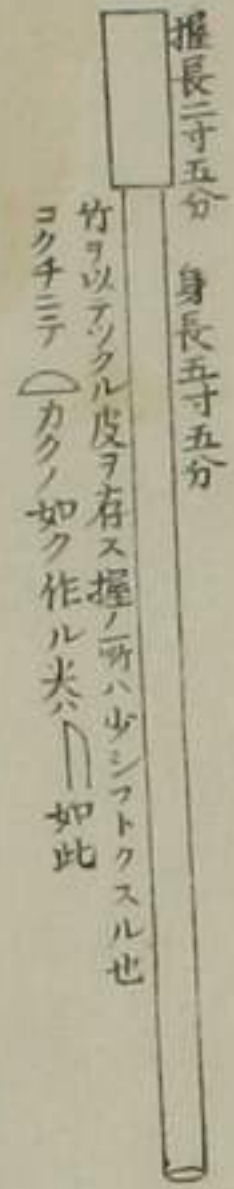 握長二寸五分　身長五寸五分
竹ヲ以テツクル皮ヲ存ス握ノ所ハ少シフトクスル也
コクチニテ カクノ如ク作ル尖ハ 如此